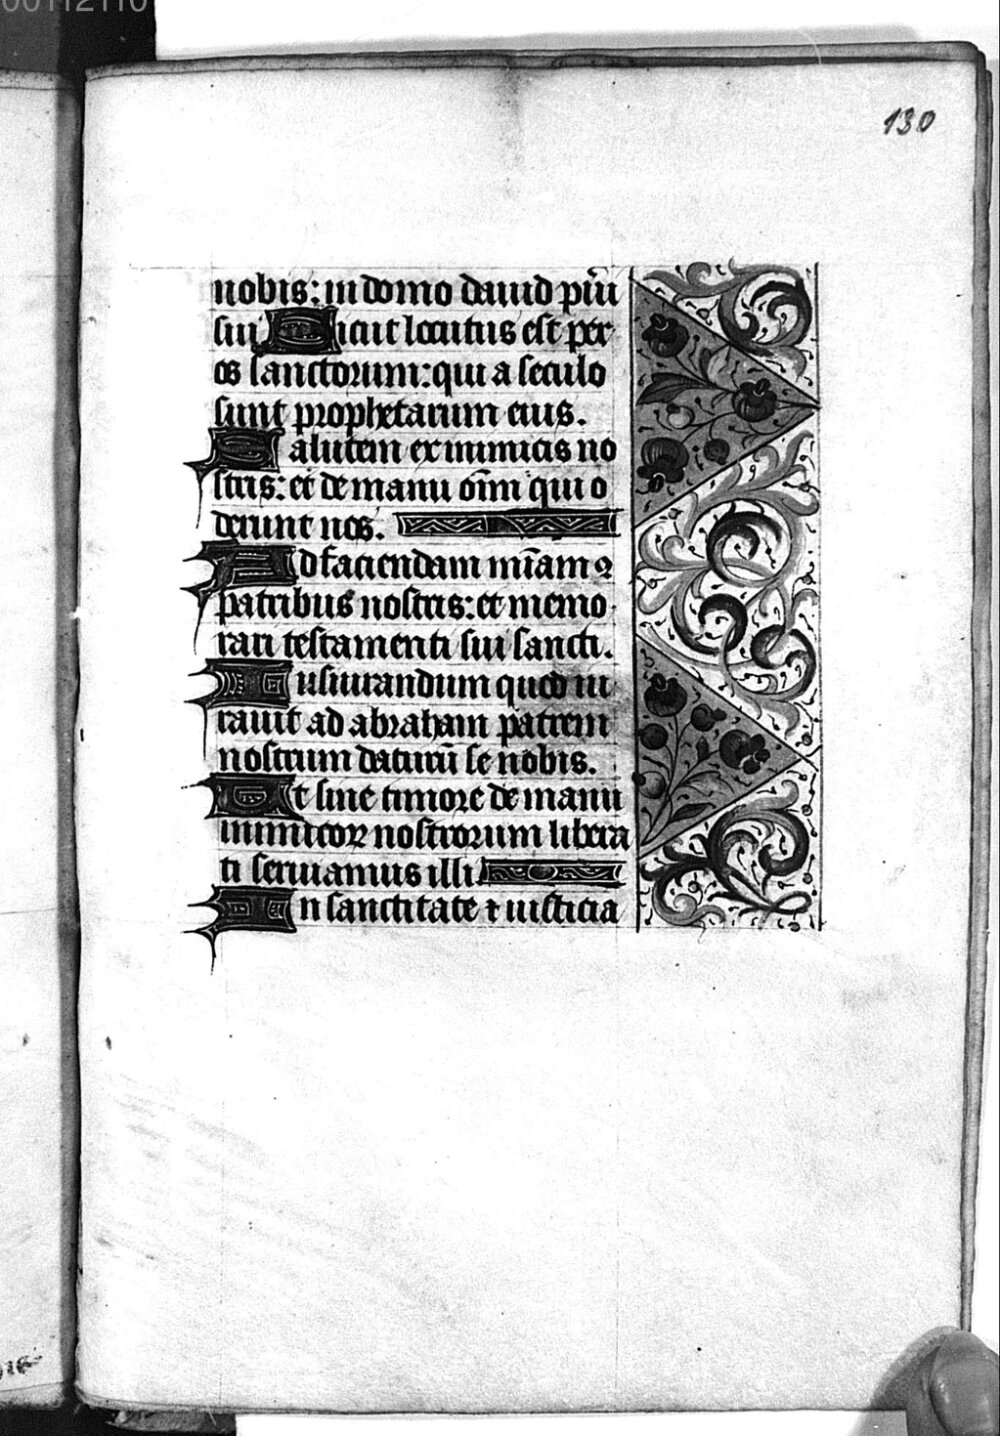 00112110
130
nobis: in domo dauid pūi
sui Sicut locutus est per
os sanctorum: qui a seculo
sunt prophetarum eius.
Salutem ex inimicis no
stris: et de manu oīm qui o
derunt nos.
Ad faciendam mīam cū
patribus nostris: et memo
rari testamenti sui sancti.
Iusiurandum quod iu
rauit ad abraham patrem
nostrum daturū se nobis.
Ut sine timore de manu
inimicoꝝ nostrorum libera
ti seruiamus illi.
In sanctitate ⁊ iusticia